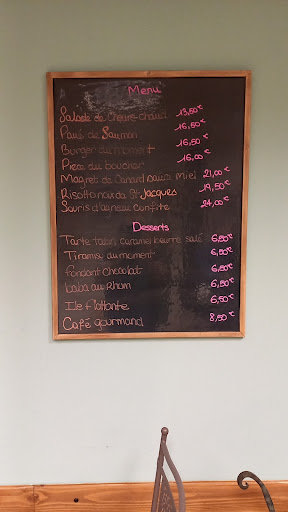 Menu
Salade de Chèvre-chaud 13,50€
Pavé de Saumon 16,50€
Burger du moment 16,50€
Pièce du boucher 16,00€
Magret de Canard sauce miel 21,00€
Risotto noix de St Jacques 19,50€
Souris d'agneau confite 24,00€
Desserts
Tarte tatin, caramel beurre salé 6,50€
Tiramisu du moment 6,50€
fondant chocolat 6,50€
baba au Rhum 6,50€
Ile flottante 6,50€
Café gourmand 8,50€